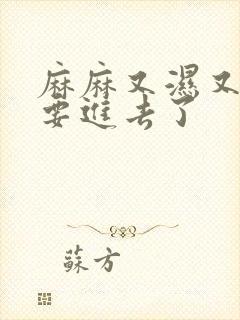 麻麻又濕又
要進去了
蘇方